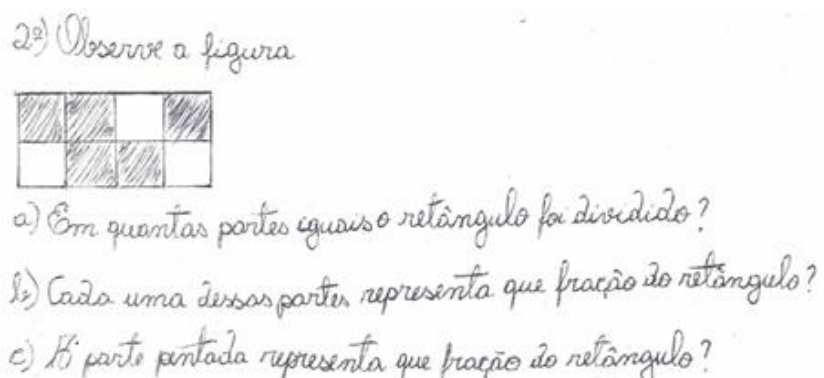 2º) Observe a figura
a) Em quantas partes iguais o retângulo foi dividido?
b) Cada uma dessas partes representa que fração do retângulo?
c) A parte pintada representa que fração do retângulo?